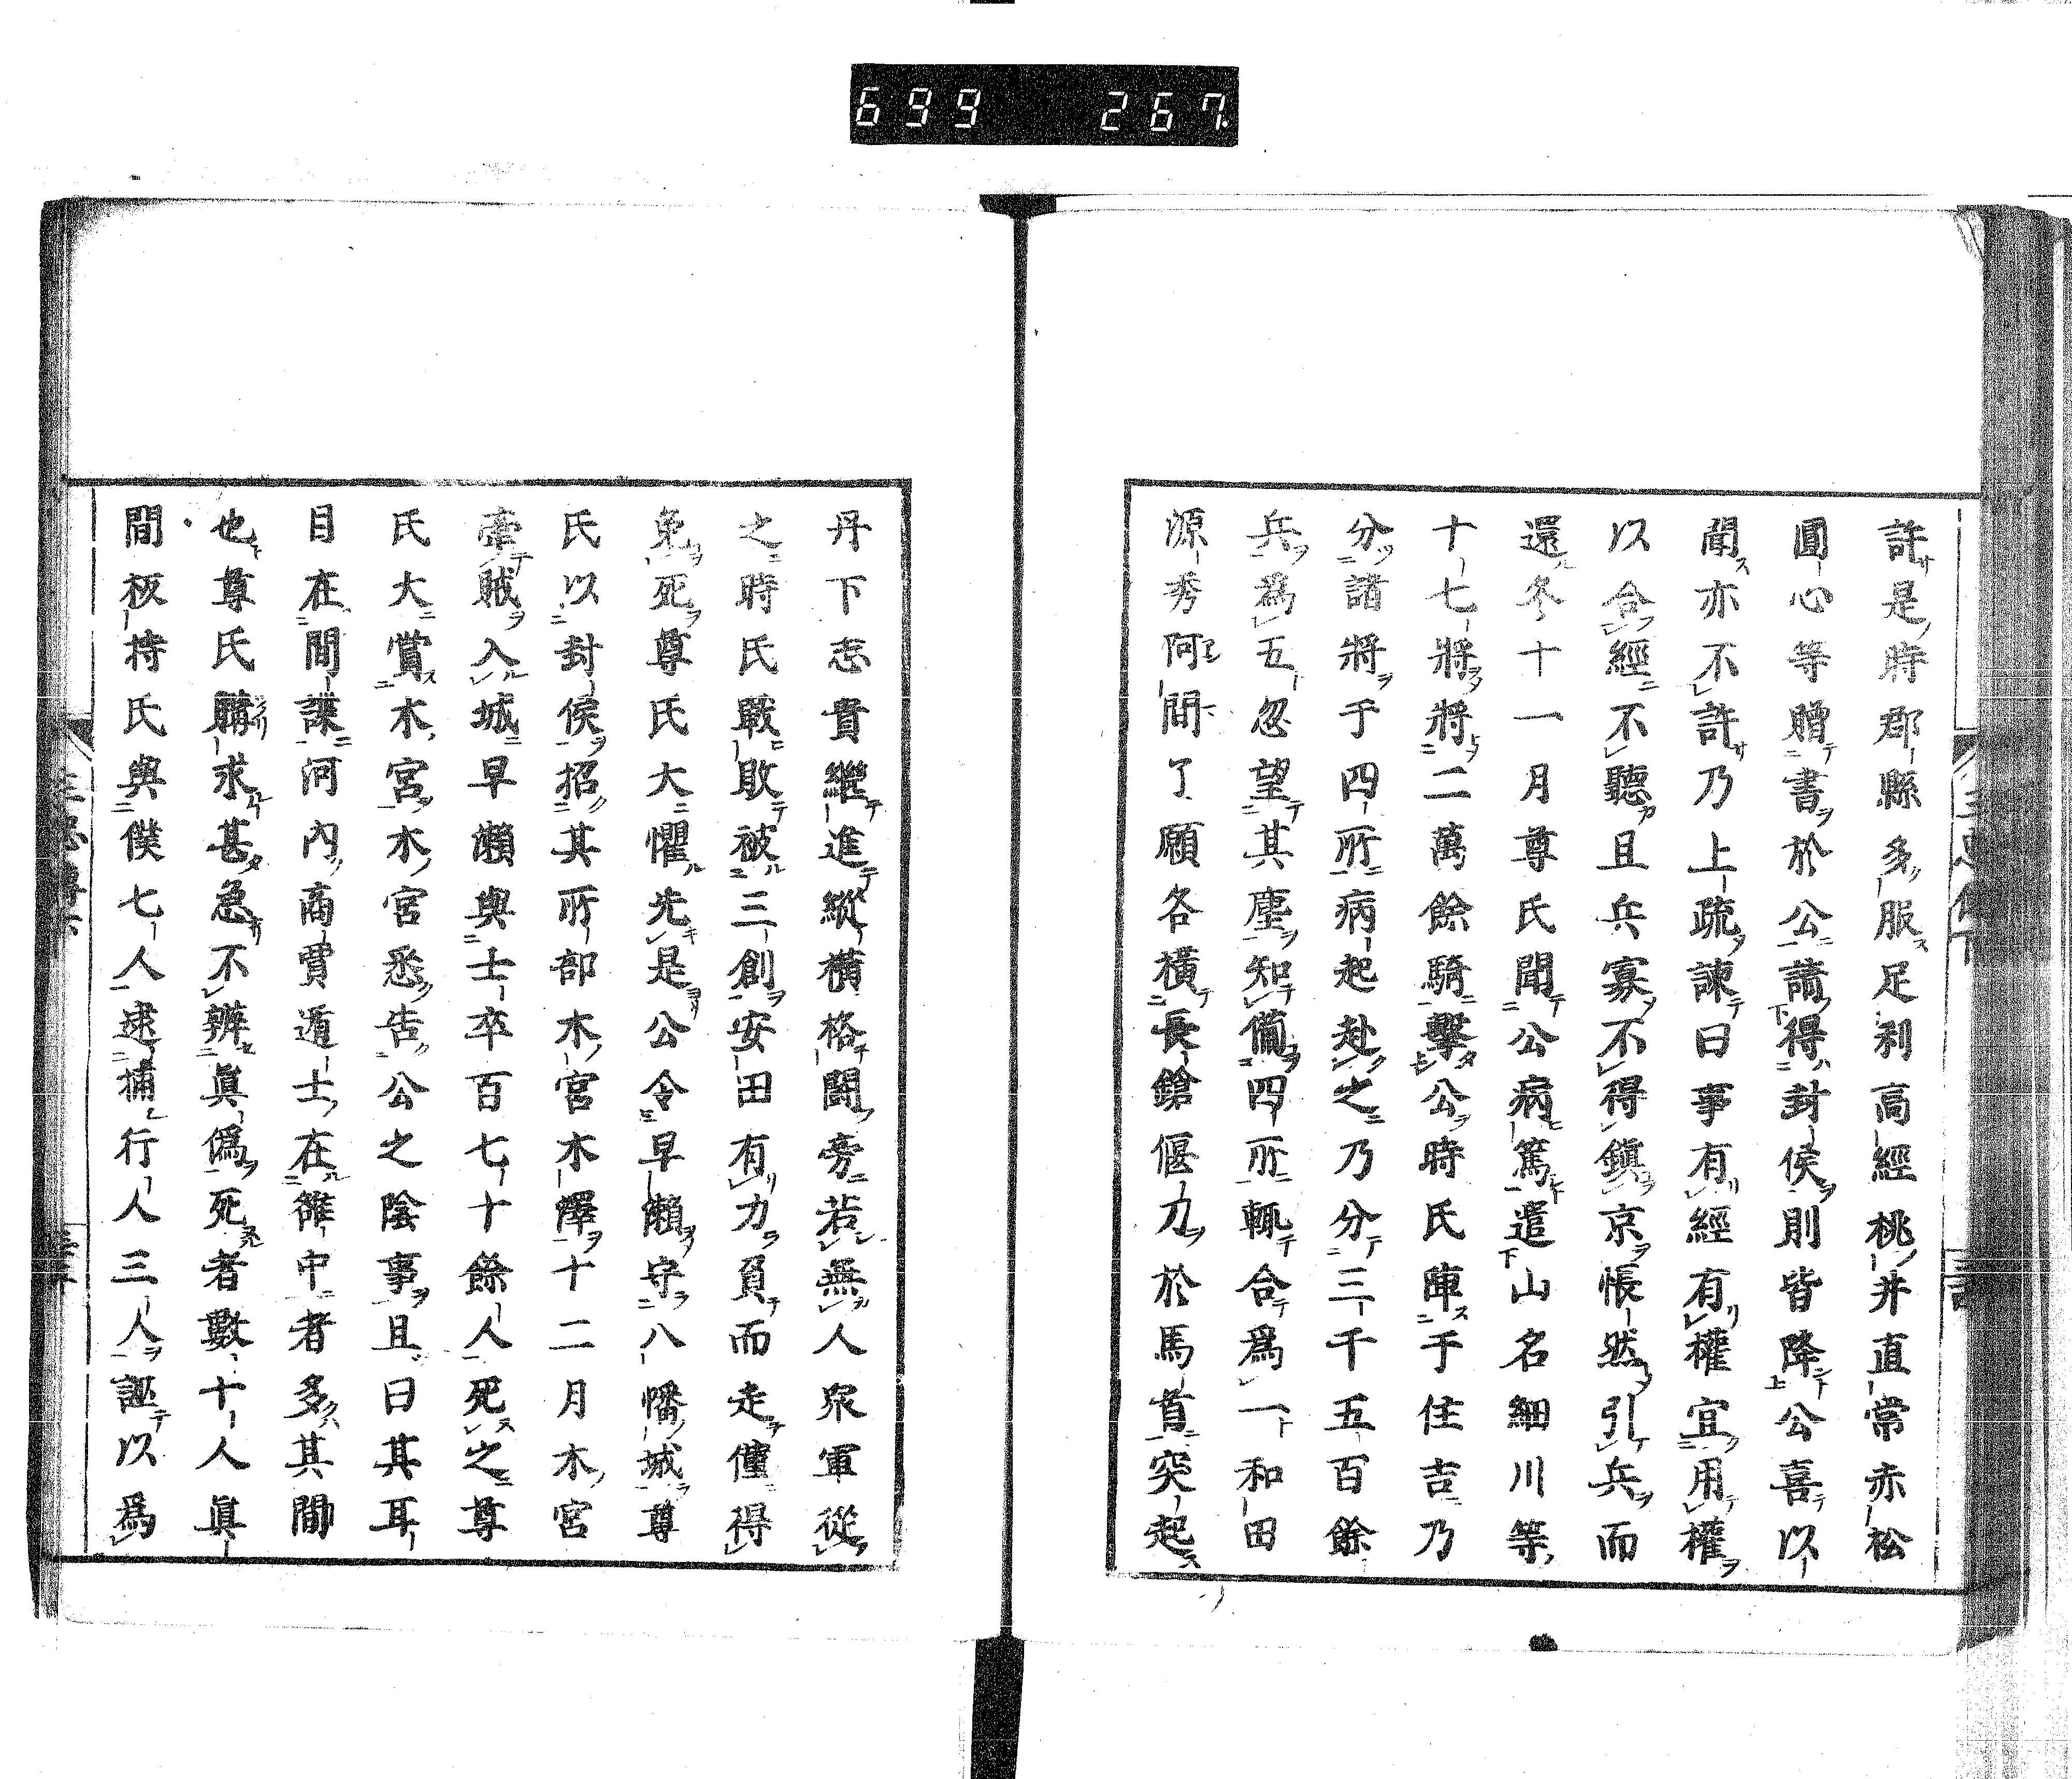 699 267
許是時郡縣多服足利高經桃井直常赤松
圓心等贈書於公請得封侯則皆降公喜以
聞亦不許乃上疏諫曰事有經有權宜用權
以合經不聽且兵寡不得鎮京悵然引兵而
還冬十一月尊氏聞公病篤遣山名細川等
十七將將二萬餘騎擊公時氏陣于住吉乃
分諸將于四所病起赴之乃分三千五百餘
兵爲五忽望其塵知備四所輒合爲一和田
源秀阿間了願各橫長鎗偃力於馬首突起
丹下志貴繼進縱橫格鬪旁若無人衆軍從
之時氏戰敗被三創安田有力負而走僅得
免死尊氏大懼先是公令早瀨守八幡城尊
氏以封侯招其所部木宮木澤十二月木宮
牽賊入城早瀨與士卒百七十餘人死之尊
氏大賞木宮木宮悉告公之陰事且曰其耳
目在間諜河內商賈遁士在雒中者多其間
也尊氏購求甚急不辨眞僞死者數十人眞
間板持氏與僕七人逮捕行人三人誣以爲